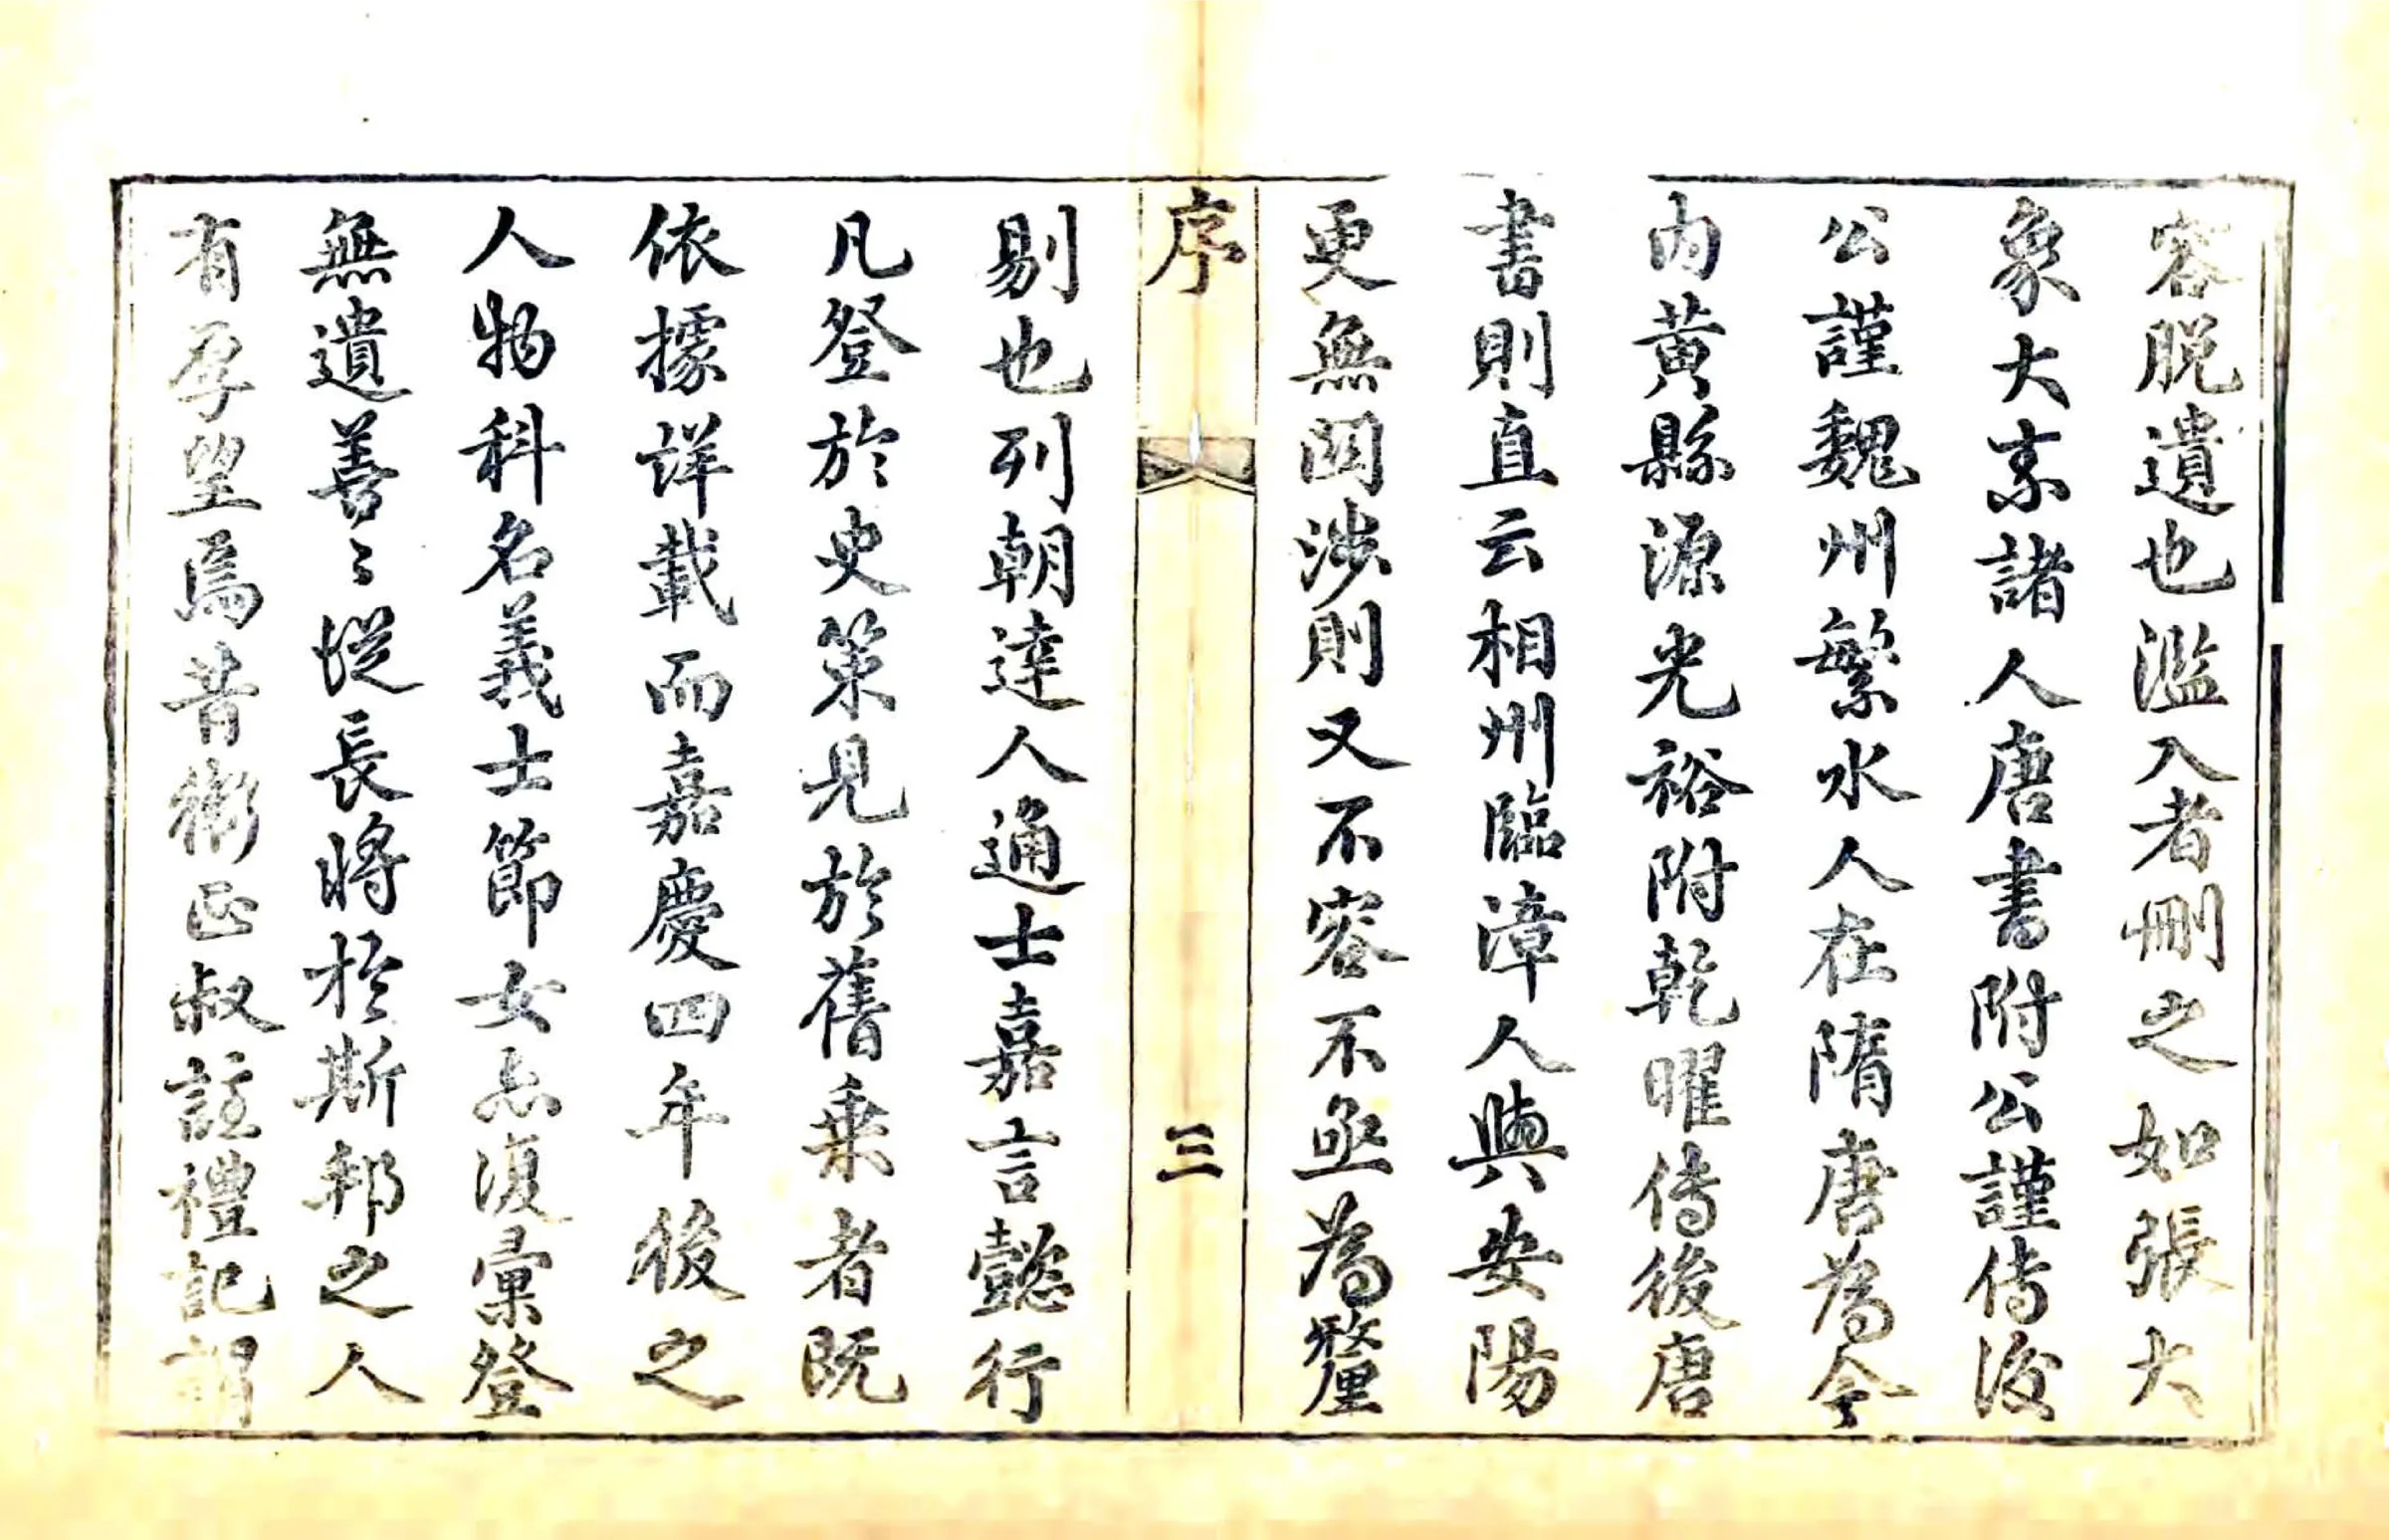 容脱遺也濫入者刪之如張大
象大素諸人唐書附公謹傳後
公謹魏州繁水人在隋唐為今
内黄縣源光裕附乾曜傳後唐
書則直云相州臨漳人與安陽
更無関涉則又不容不亟為釐
序
三
剔也列朝達人通士嘉言懿行
凡登於史策見於舊乗者既
依據詳載而嘉慶四年後之
人物科名義士節女亦復彙登
無遺善〻從長將於斯邦之人
有厚望焉昔衛正叔註禮記謂